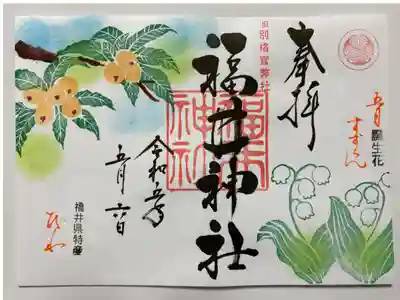 五月誕生花
すずらん
奉拝
旧別格官幣社
福井神社
福井神社
令和五年
五月六日
福井県特産
びわ